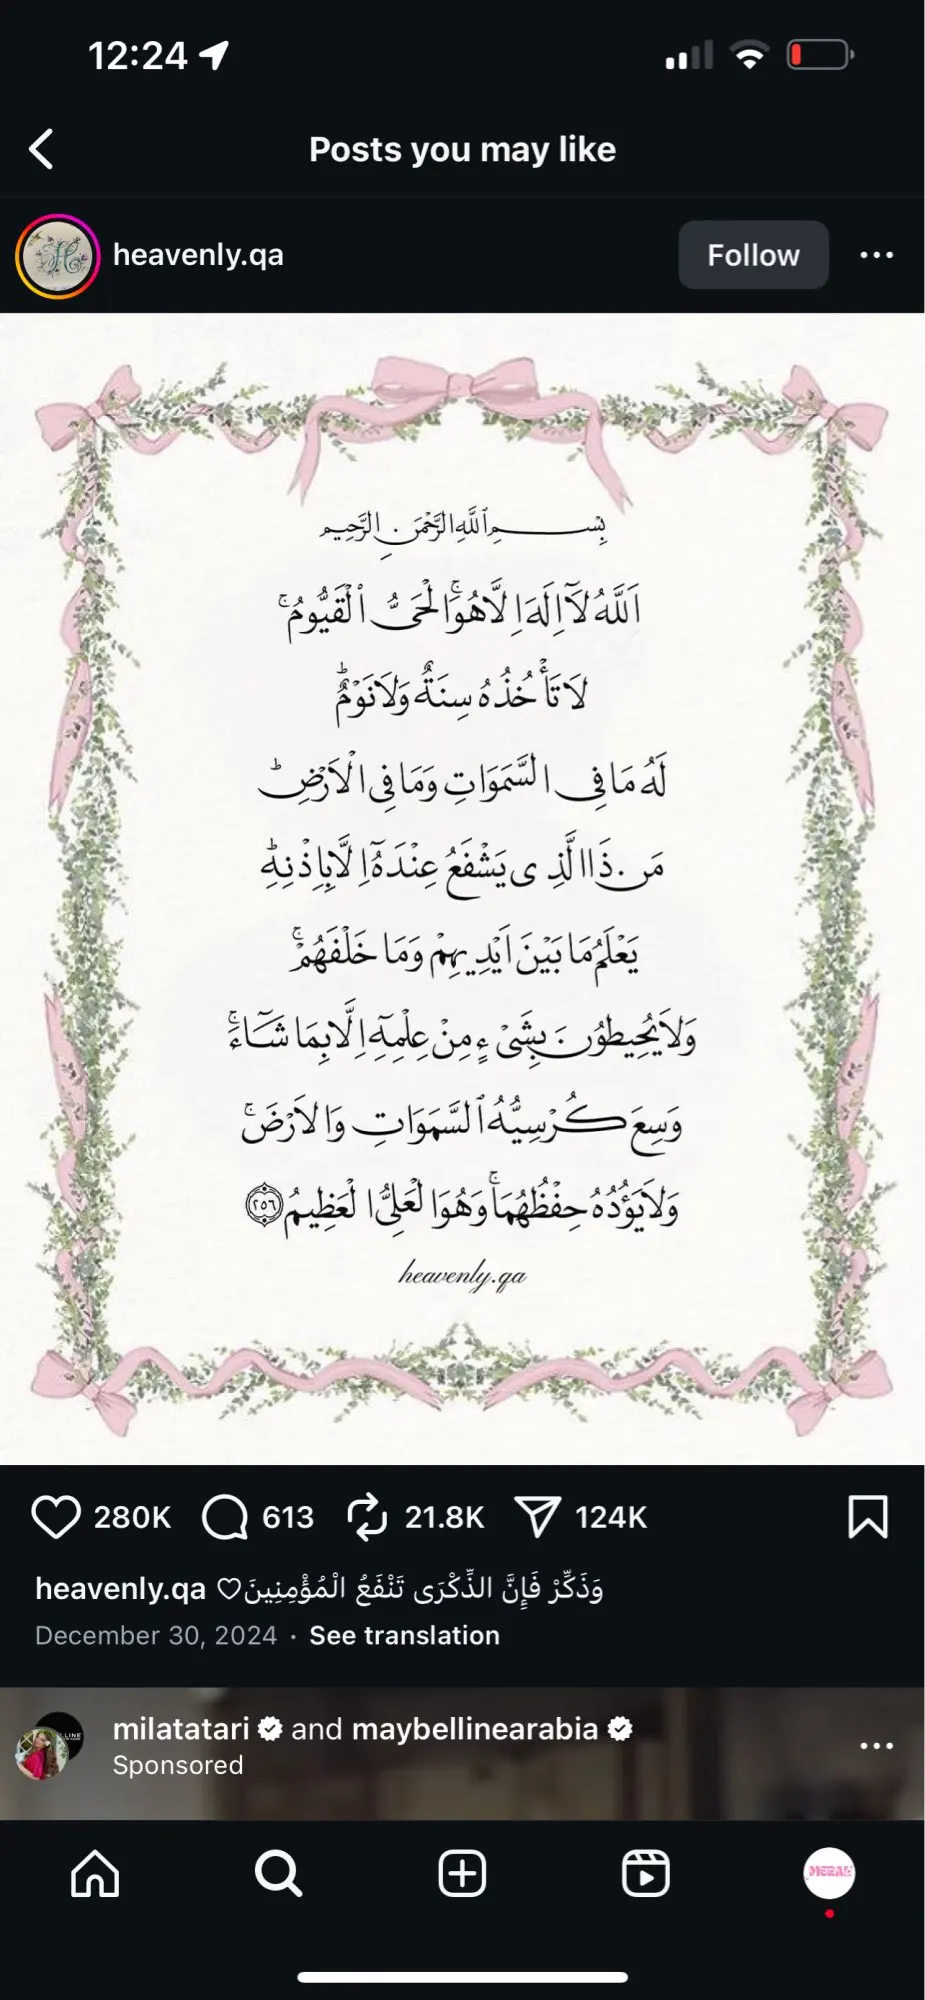 12:24
Posts you may like
heavenly.qa
Follow
بِسْمِ ٱللَّهِ الرَّحْمَنِ الرَّحِيمِ
اَللَّهُ لَآ اِلَهَ اِلَّا هُوَۚ الْحَىُّ ٱلْقَيُّومُۚ
لَا تَأْخُذُهُ سِنَةٌ وَلَا نَوْمٌؕ
لَهُ مَا فِى السَّمَوَاتِ وَمَا فِى الْاَرْضِؕ
مَن ذَا الَّذِى يَشْفَعُ عِنْدَهُٓ اِلَّا بِاِذْنِهِؕ
يَعْلَمُ مَا بَيْنَ اَيْدِيهِمْ وَمَا خَلْفَهُمْۚ
وَلَا يُحِيطُونَ بِشَىْءٍ مِنْ عِلْمِهِٓ اِلَّا بِمَا شَآءَۚ
وَسِعَ كُرْسِيُّهُ ٱلسَّمَوَاتِ وَالْاَرْضَۚ
وَلَا يَؤُدُهُ حِفْظُهُمَاۚ وَهُوَ الْعَلِىُّ الْعَظِيمُ ٢٥٦
heavenly.qa
280K 613 21.8K 124K
heavenly.qa ♡وَذَكِّرْ فَإِنَّ الذِّكْرَى تَنْفَعُ الْمُؤْمِنِينَ
December 30, 2024 · See translation
milatatari and maybellinearabia
Sponsored